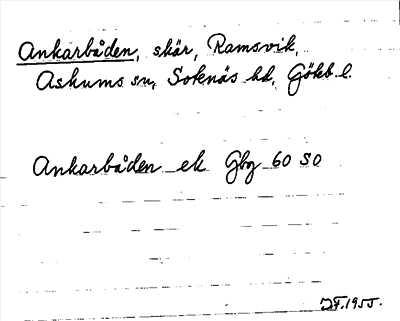 Ankarbåden, skär, Ramsvik,
Askums sn, Soknäs hd, Göteb l.
Ankarbåden ek Gbg 60 SO
JF. 1955.